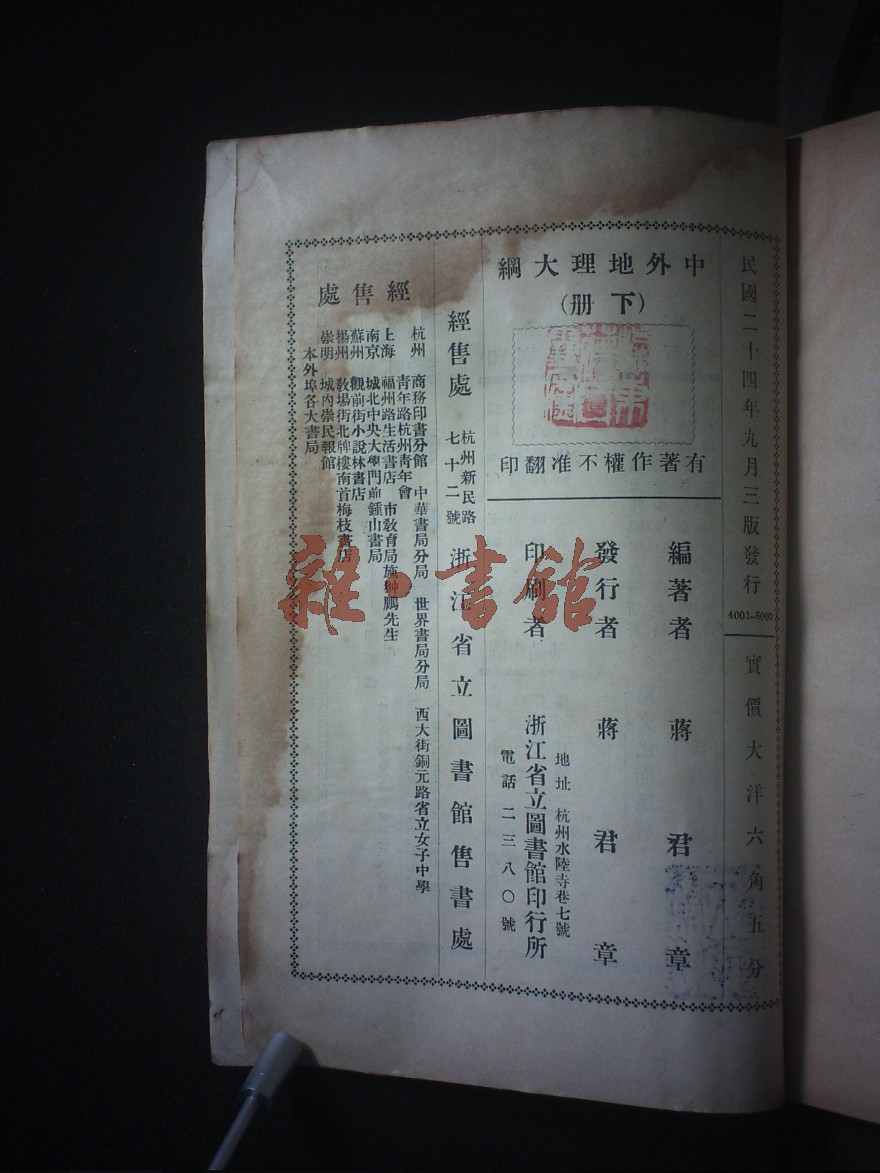 民國二十四年九月三版發行
4001-6000
實價大洋六角五分
中外地理大綱
(下册)
有著作權不准翻印
編著者 蔣君章
發行者 蔣君章
印刷者 浙江省立圖書館印行所
地址 杭州水陸寺巷七號
電話 二三八〇號
經售處 杭州新民路七十二號 浙江省立圖書館售書處
經售處
杭州 商務印書分館 中華書局分局 世界書局分局 西大街銅元路省立女子中學
青年路杭州青年會
上海 福州路生活書店 市敎育局施翀鵬先生
南京 城北中央大學門前鍾山書局
蘇州 觀前街小說林書店
揚州 敎場街北牌樓南首梅枝書店
崇明 城內崇民報館
本外埠各大書局
雜·書館